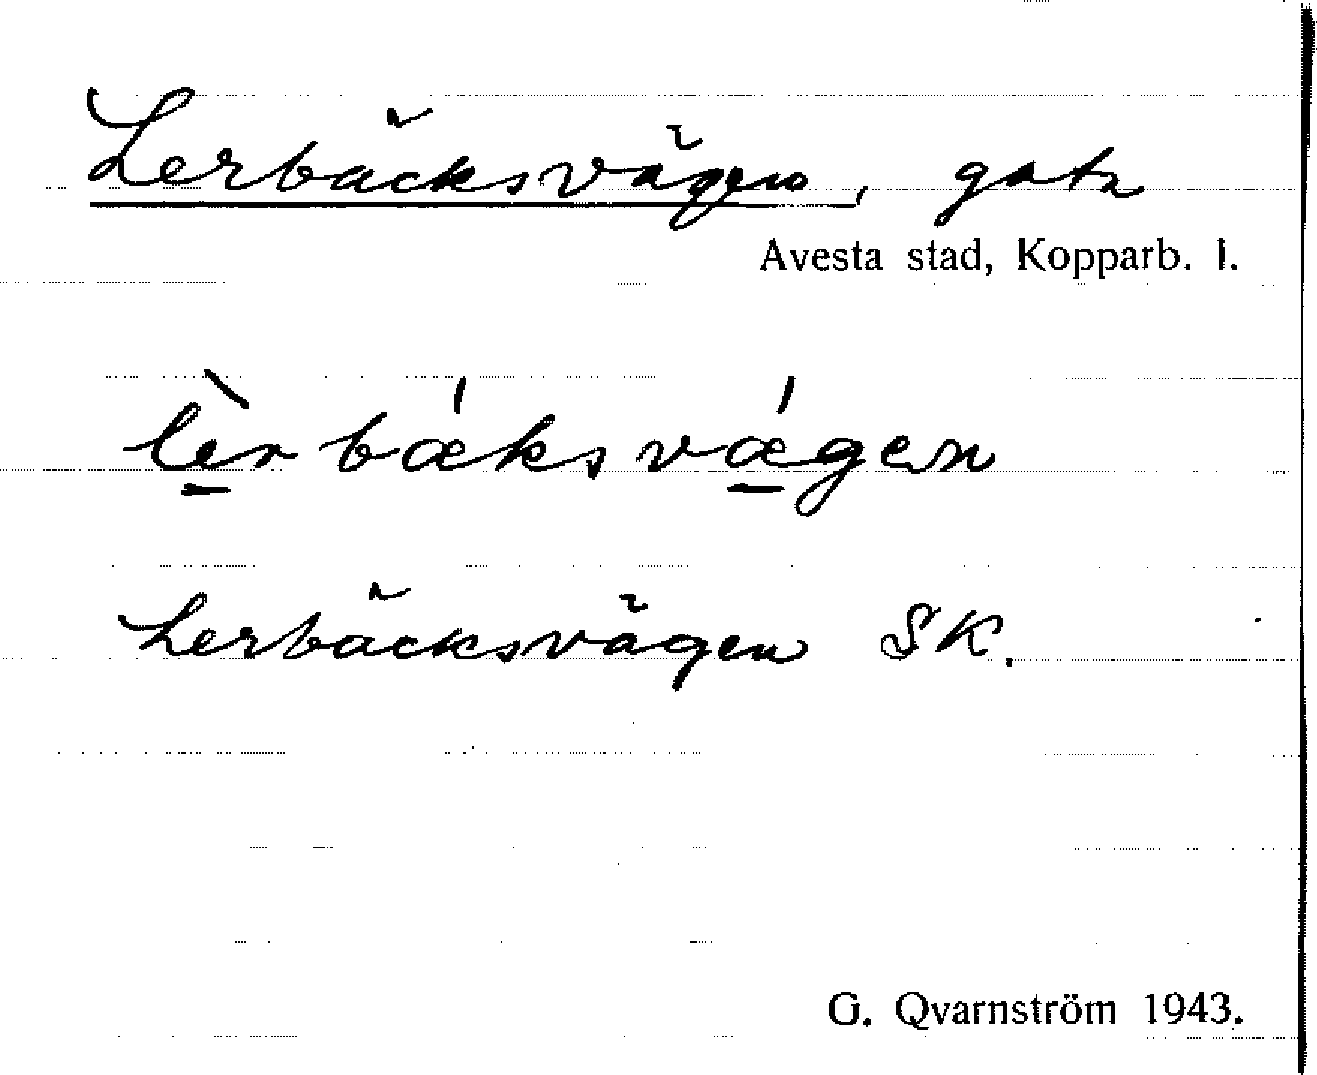 Lerbäcksvägen, gata
Avesta stad, Kopparb. l.
lè̱rbǽksvǽ̱gən
Lerbäcksvägen SK.
G. Qvarnström 1943.